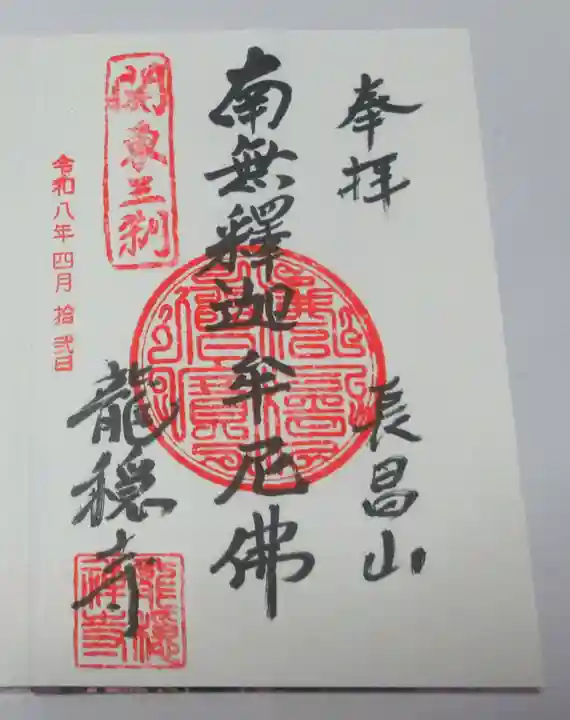 奉拝
長昌山
南無釋迦牟尼佛
關東三刹
龍穏寺
令和八年四月拾弐日
龍穏禅寺